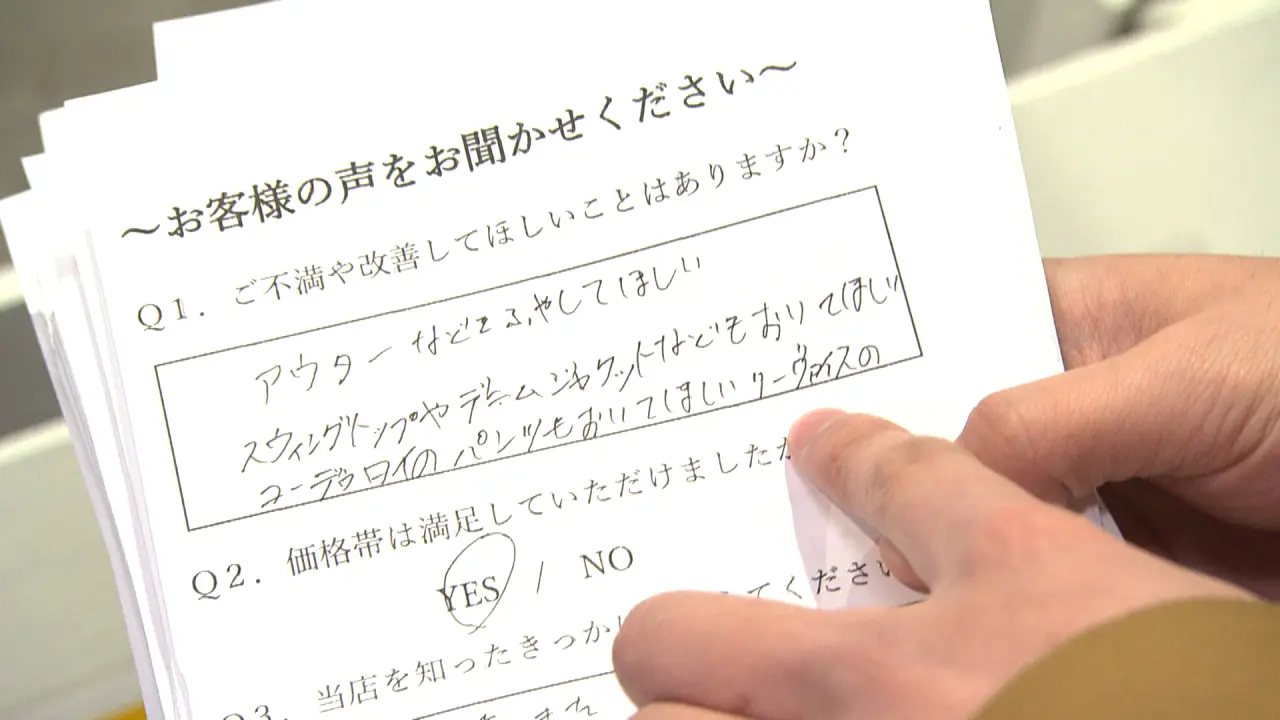 ～お客様の声をお聞かせください～
Q1. ご不満や改善してほしいことはありますか？
アウターなどをふやしてほしい
スウィングトップやデニムジャケットなどもおいてほしい
コーデュロイのパンツもおいてほしい リーヴァイスの
Q2. 価格帯は満足していただけましたか
YES / NO
Q3. 当店を知ったきっか
てください